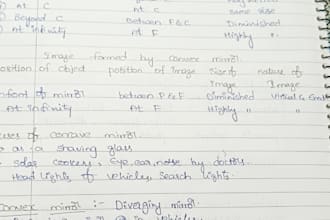 At C same size
Beyond C between F&C Diminished
At infinity At F Highly "
Image formed by convex mirror
position of object position of Image Size of nature of
Image Image
infront of mirror between P&F Diminished Virtual &
At Infinity At F Highly " "
uses of concave mirror
as a shaving glass
solar cookers, Eye, ear, nose by doctors
Head lights of vehicles, Search lights.
Convex mirror :- Diverging mirror.
vehicles